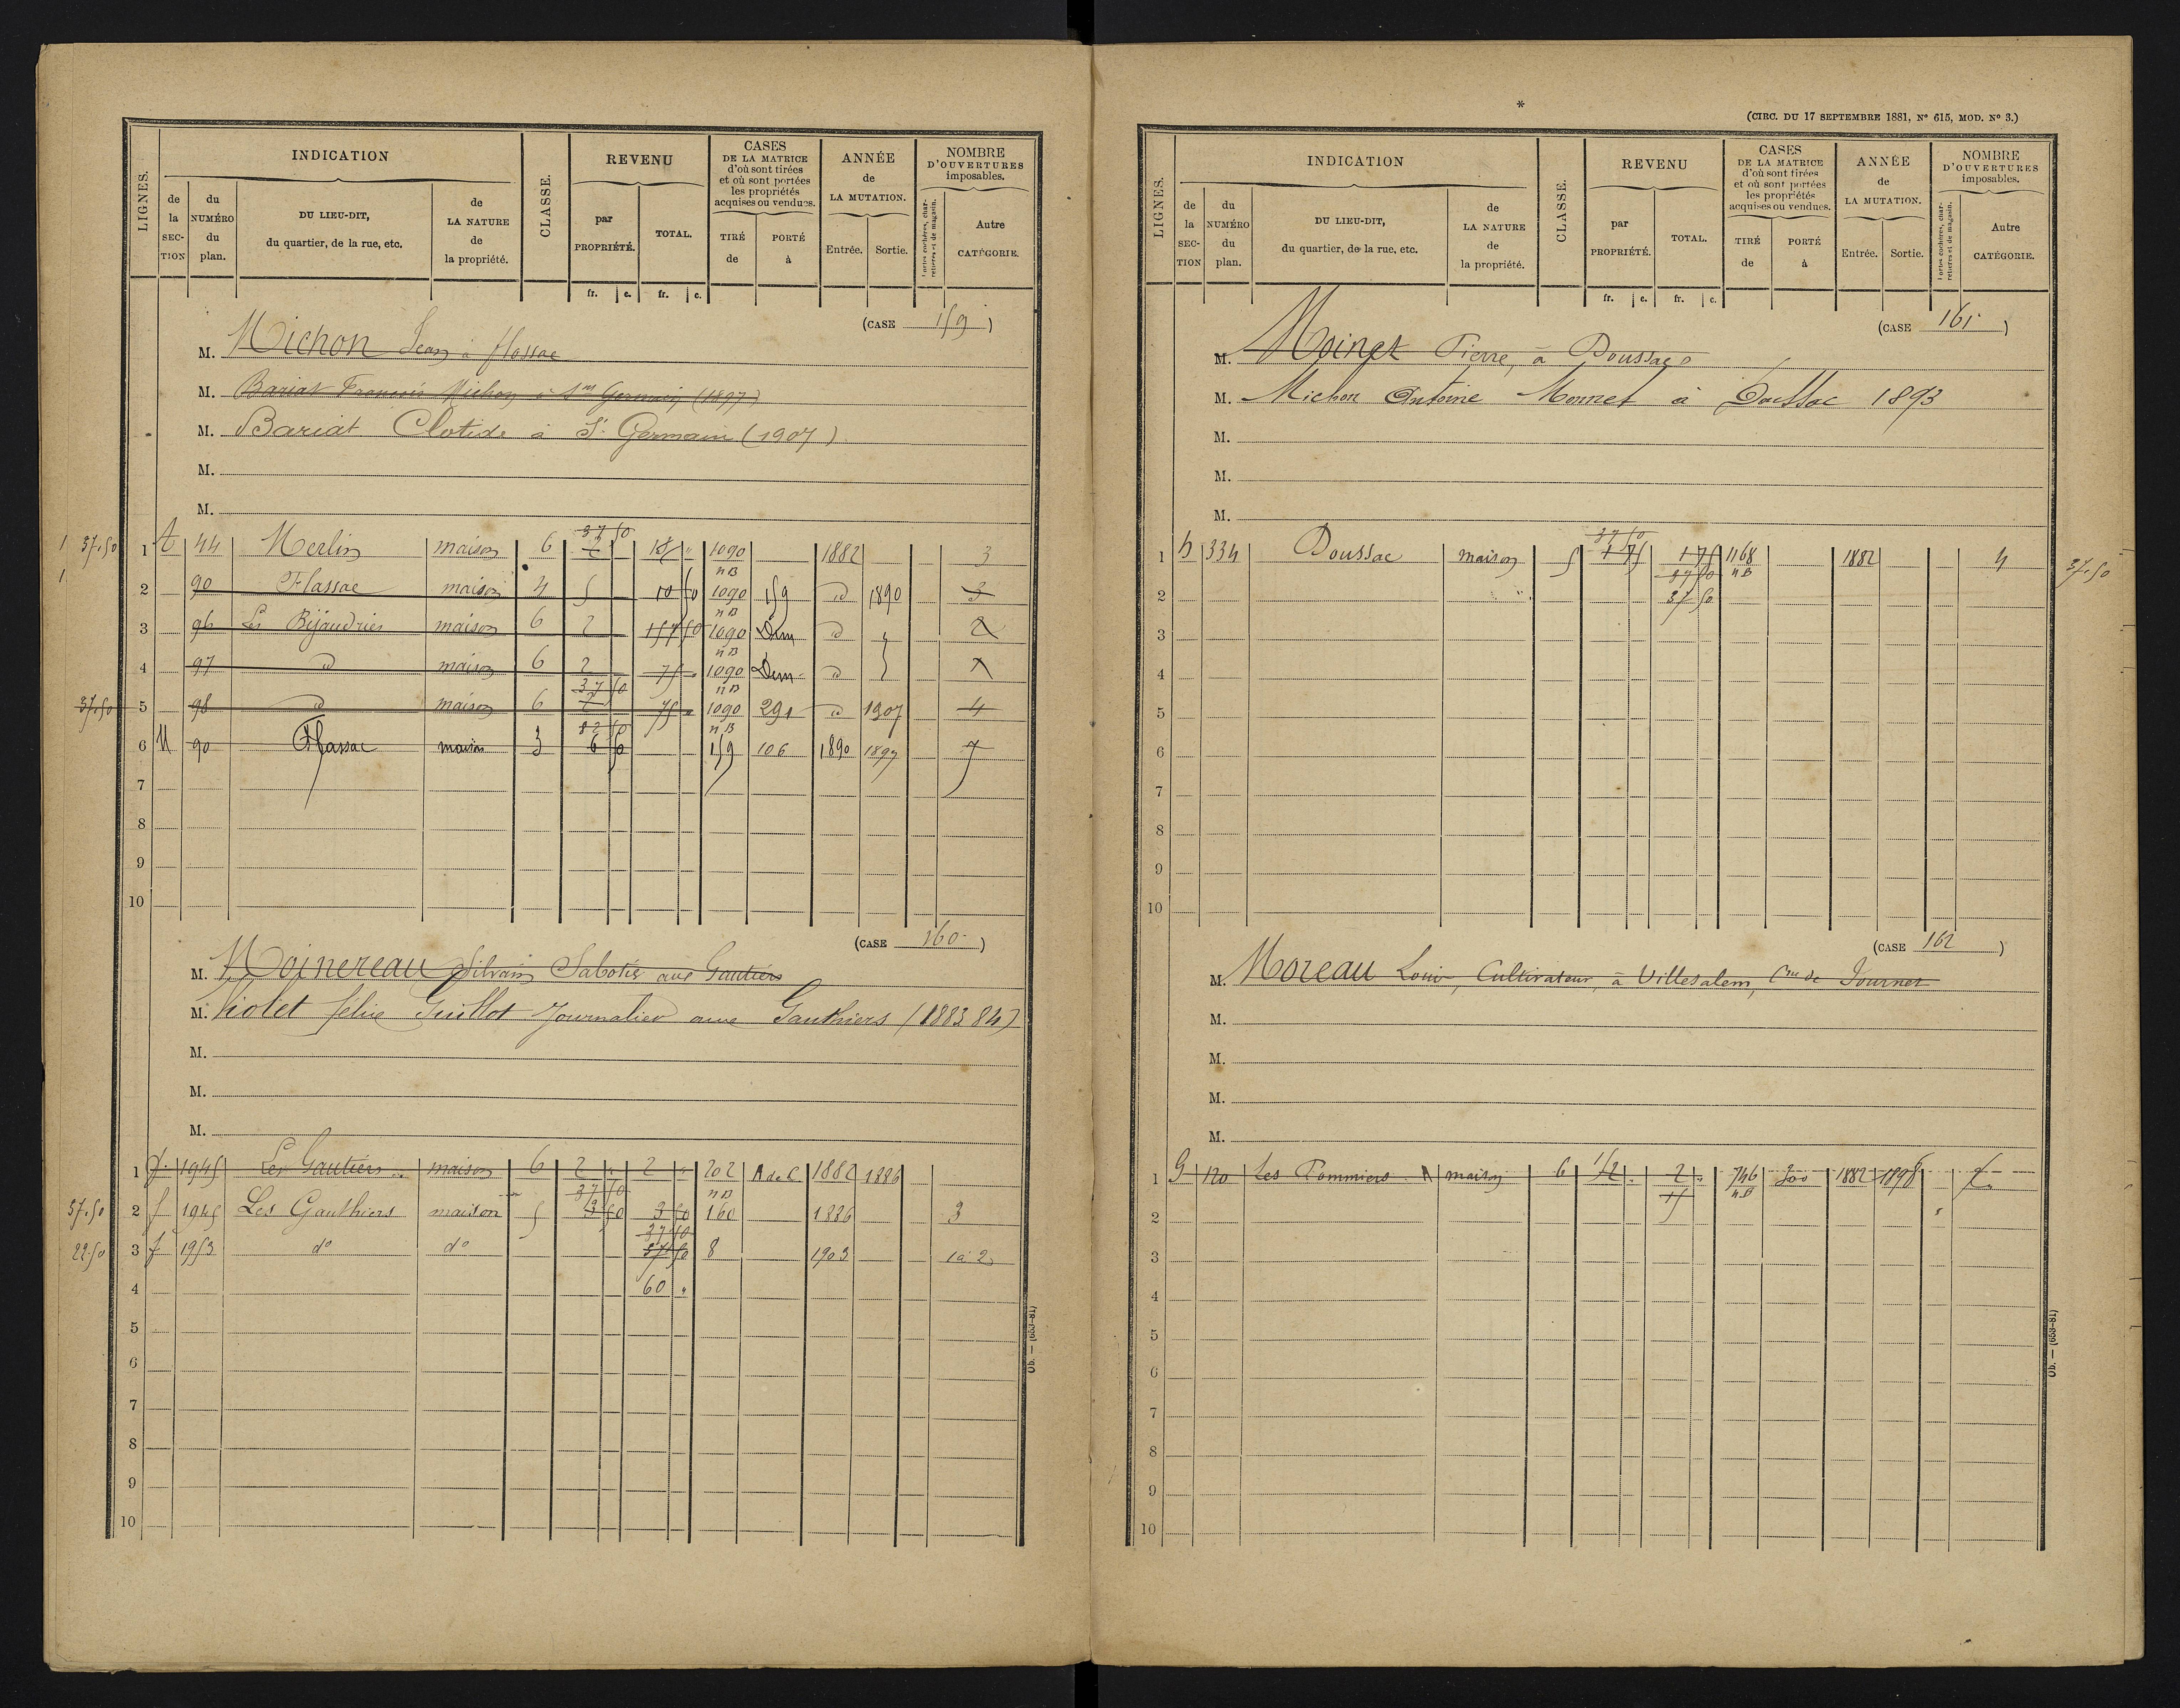 LIGNES.
INDICATION
de la SECTION
du NUMÉRO du plan.
DU LIEU-DIT, du quartier, de la rue, etc.
de LA NATURE de la propriété.
CLASSE.
REVENU
par PROPRIÉTÉ.
TOTAL.
fr. c. fr. c.
CASES DE LA MATRICE d'où sont tirées et où sont portées les propriétés acquises ou vendues.
TIRÉ de
PORTÉ à
ANNÉE de LA MUTATION.
Entrée. Sortie.
NOMBRE D'OUVERTURES imposables.
Portes cochères, charretières et de magasin.
Autre CATÉGORIE.
(CASE 159)
M. Michon Jean à flassac
M. Bariat François Michon à St Germain (1897)
M. Bariat Clotide à St Germain (1907)
M.
M.
37.50 1 44 Merlin maison 6 37 50 2 1090 nB 1882 3
2 90 Flassac maison 4 5 10 50 1090 nB 159 d 1890 3
3 96 Les Bijaudries maison 6 2 157 50 1090 nB Dem d 2
4 97 d maison 6 2 75 1090 nB Dem d
37.50 5 98 d maison 6 37 50 2 75 1090 nB 291 d 1907 4
6 90 Flassac maison 3 82 50 6 50 159 106 1890 1897 7
7
8
9
10
(CASE 160)
M. Moinereau Silvain Sabotier aux Gautiers
M. Violet félix Guillot Journalier aux Gauthiers (1883 84)
M.
M.
M.
1 f. 1945 Les Gautiers maison 6 2 2 202 nB A de C 1882 1886
37.50 2 f 1945 Les Gauthiers maison 5 37 50 3 50 3 50 160 1886 3
22.50 3 f 1953 do do 37 50 37 50 8 1903 1 à 2
4 60
5
6
7
8
9
10
Ob. — (653-81)
*
(CIRC. DU 17 SEPTEMBRE 1881, No 615, MOD. No 3.)
LIGNES.
INDICATION
de la SECTION
du NUMÉRO du plan.
DU LIEU-DIT, du quartier, de la rue, etc.
de LA NATURE de la propriété.
CLASSE.
REVENU
par PROPRIÉTÉ.
TOTAL.
fr. c. fr. c.
CASES DE LA MATRICE d'où sont tirées et où sont portées les propriétés acquises ou vendues.
TIRÉ de
PORTÉ à
ANNÉE de LA MUTATION.
Entrée. Sortie.
NOMBRE D'OUVERTURES imposables.
Portes cochères, charretières et de magasin.
Autre CATÉGORIE.
(CASE 161)
M. Moinet Pierre, à Doussac
M. Michon Antoine Monnet à Doussac 1893
M.
M.
M.
1 h 334 Doussac maison 5 37 50 1 75 1 75 1168 nB 1882 4 37.50
2 37 50 37 50
3
4
5
6
7
8
9
10
(CASE 162)
M. Moreau Louis, Cultivateur, à Villesalem, Cne de Journet
M.
M.
M.
M.
1 G 120 Les Pommiers maison 6 2 746 nB 300 1882 1898
2 15
3
4
5
6
7
8
9
10
Ob. — (653-81)